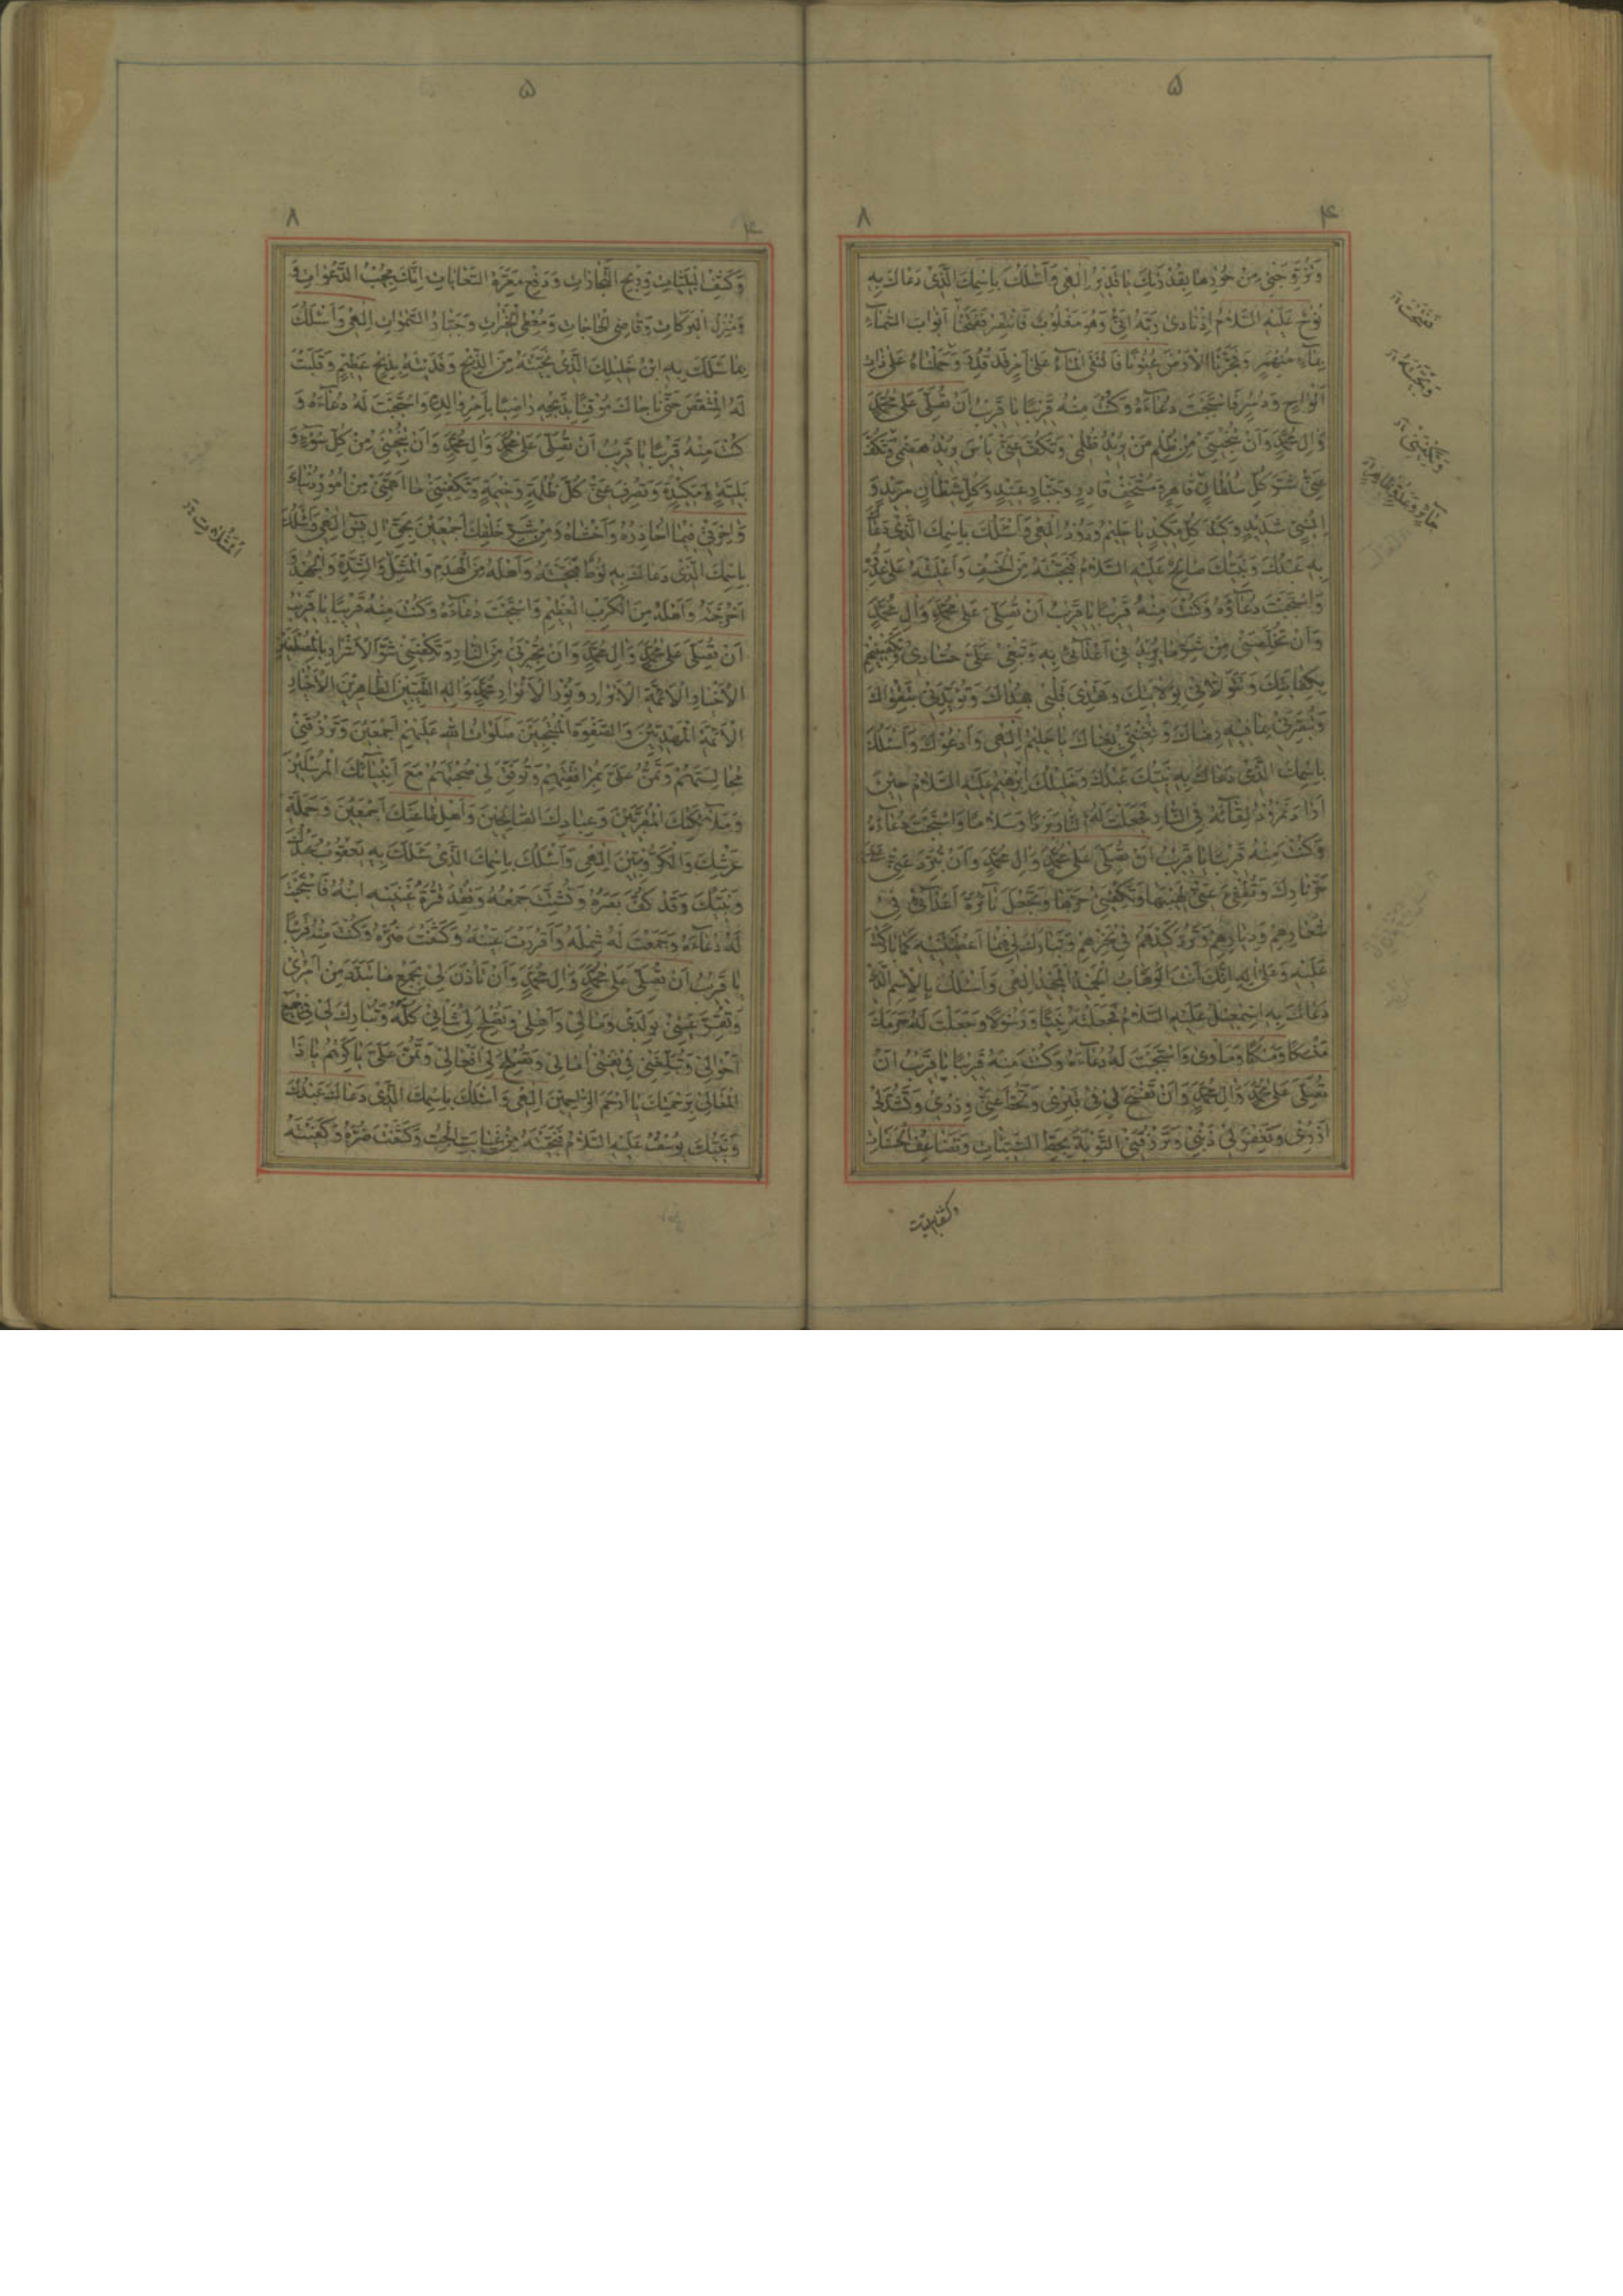 ۵
۸ ۴
وَتُزَوِّجَنِی مِنْ حُورِهَا بِقُدْرَتِكَ يَا قَدِيرُ اِلٰهِی وَاَسْئَلُكَ بِاسْمِكَ الَّذِی دَعَاكَ بِهِ
نُوحٌ عَلَيْهِ السَّلَامُ اِذْ نَادىٰ رَبَّهُ اَنِّی وَهُوَ مَغْلُوبٌ فَانْتَصِرْ فَفَتَحْنَا اَبْوَابَ السَّمَآءِ
بِمَآءٍ مُنْهَمِرٍ وَفَجَّرْنَا الْاَرْضَ عُيُونًا فَالْتَقَى الْمَآءُ عَلىٰ اَمْرٍ قَدْ قُدِرَ وَحَمَلْنَاهُ عَلىٰ ذَاتِ
اَلْوَاحٍ وَدُسُرٍ فَاسْتَجَبْتَ دُعَآءَهُ وَكُنْتَ مِنْهُ قَرِيبًا يَا قَرِيبُ اَنْ تُصَلِّیَ عَلىٰ مُحَمَّدٍ
وَاٰلِ مُحَمَّدٍ وَاَنْ تُنْجِيَنِی مِنْ ظُلْمِ مَنْ يُرِيدُ ظُلْمِی وَتَكُفَّ عَنِّی بَاْسَ مَنْ يُرِيدُ هَضْمِی وَتَكْفِيَنِی
شَرَّ كُلِّ سُلْطَانٍ قَاهِرٍ وَمُسْتَخِفٍّ قَادِرٍ وَجَبَّارٍ عَنِيدٍ وَكُلِّ شَيْطَانٍ مَرِيدٍ وَ
اِنْسِیٍّ شَدِيدٍ وَكَيْدَ كُلِّ مَكِيدٍ يَا حَلِيمُ يَا وَدُودُ اِلٰهِی وَاَسْئَلُكَ بِاسْمِكَ الَّذِی دَعَاكَ
بِهِ عَبْدُكَ وَنَبِيُّكَ صَالِحٌ عَلَيْهِ السَّلَامُ فَنَجَّيْتَهُ مِنَ الْخَسْفِ وَاَعْلَيْتَهُ عَلىٰ عَدُوِّهِ
وَاسْتَجَبْتَ دُعَآءَهُ وَكُنْتَ مِنْهُ قَرِيبًا يَا قَرِيبُ اَنْ تُصَلِّیَ عَلىٰ مُحَمَّدٍ وَاٰلِ مُحَمَّدٍ
وَاَنْ تُخَلِّصَنِی مِنْ شَرِّ مَا يُرِيدُ بِی اَعْدَآئِی بِهِ وَيَبْغِی عَلَیَّ حُسَّادِی وَتَكْفِيَنِيهِمْ
بِكِفَايَتِكَ وَتَتَوَلَّانِی بِوِلَايَتِكَ وَتَهْدِیَ قَلْبِی بِهُدَاكَ وَتُؤَيِّدَنِی بِتَقْوَاكَ
وَتُبَصِّرَنِی بِمَا فِيهِ رِضَاكَ وَتُغْنِيَنِی بِغِنَاكَ يَا حَلِيمُ اِلٰهِی وَاَدْعُوكَ وَاَسْئَلُكَ
بِاسْمِكَ الَّذِی دَعَاكَ بِهِ نَبِيُّكَ عَبْدُكَ وَخَلِيلُكَ اِبْرٰهِيمُ عَلَيْهِ السَّلَامُ حِينَ
اَرَادَ نَمْرُودُ اِلْقَآئَهُ فِی النَّارِ فَجَعَلْتَ لَهُ النَّارَ بَرْدًا وَسَلَامًا وَاسْتَجَبْتَ دُعَآءَهُ
وَكُنْتَ مِنْهُ قَرِيبًا يَا قَرِيبُ اَنْ تُصَلِّیَ عَلىٰ مُحَمَّدٍ وَاٰلِ مُحَمَّدٍ وَاَنْ تُبَرِّدَ عَنِّی
حَرَّ نَارِكَ وَتُطْفِئَ عَنِّی لَهِيبَهَا وَتَكْفِيَنِی حَرَّهَا وَتَجْعَلَ نَآئِرَةَ اَعْدَآئِی فِی
شِعَارِهِمْ وَدِثَارِهِمْ وَتَرُدَّ كَيْدَهُمْ فِی نُحُورِهِمْ وَتُبَارِكَ لِی فِيمَا اَعْطَيْتَنِيهِ كَمَا بَارَكْتَ
عَلَيْهِ وَعَلىٰ اٰلِهِ اِنَّكَ اَنْتَ الْوَهَّابُ الْحَمِيدُ الْمَجِيدُ اِلٰهِی وَاَسْئَلُكَ بِالْاِسْمِ الَّذِی
دَعَاكَ بِهِ اِسْمٰعِيلُ عَلَيْهِ السَّلَامُ فَجَعَلْتَهُ نَبِيًّا وَرَسُولًا وَجَعَلْتَ لَهُ حَرَمَكَ
مَنْسَكًا وَمَسْكَنًا وَمَاْوىً وَاسْتَجَبْتَ لَهُ دُعَآءَهُ وَكُنْتَ مِنْهُ قَرِيبًا يَا قَرِيبُ اَنْ
تُصَلِّیَ عَلىٰ مُحَمَّدٍ وَاٰلِ مُحَمَّدٍ وَاَنْ تَفْسَحَ لِی فِی قَبْرِی وَتَحُطَّ عَنِّی وِزْرِی وَتَشُدَّ لِی
اَزْرِی وَتَغْفِرَ لِی ذَنْبِی وَتَرْزُقَنِی التَّوْبَةَ بِحَطِّ السَّيِّئَاتِ وَتَضَاعُفِ الْحَسَنَاتِ
وكشف البليات
۵
۸ ۴
وَكَشْفِ الْبَلِيَّاتِ وَرِبْحِ التِّجَارَاتِ وَدَفْعِ مَعَرَّةِ السِّعَايَاتِ اِنَّكَ مُجِيبُ الدَّعَوَاتِ وَ
وَمُنْزِلُ الْبَرَكَاتِ وَقَاضِی الْحَاجَاتِ وَمُعْطِی الْخَيْرَاتِ وَجَبَّارُ السَّمٰوَاتِ اِلٰهِی وَاَسْئَلُكَ
بِمَا سَئَلَكَ بِهِ ابْنُ خَلِيلِكَ الَّذِی نَجَّيْتَهُ مِنَ الذَّبْحِ وَفَدَيْتَهُ بِذِبْحٍ عَظِيمٍ وَقَلَبْتَ
لَهُ الْمِشْقَصَ حَتّٰى نَاجَاكَ مُوقِنًا بِذَبْحِهِ رَاضِيًا بِاَمْرِ وَالِدِهِ وَاسْتَجَبْتَ لَهُ دُعَآءَهُ وَ
كُنْتَ مِنْهُ قَرِيبًا يَا قَرِيبُ اَنْ تُصَلِّیَ عَلىٰ مُحَمَّدٍ وَاٰلِ مُحَمَّدٍ وَاَنْ تُنْجِيَنِی مِنْ كُلِّ سُوٓءٍ وَ
بَلِيَّةٍ وَمَكِيدَةٍ وَتَصْرِفَ عَنِّی كُلَّ ظُلْمَةٍ وَخِيمَةٍ وَتَكْفِيَنِی مَا اَهَمَّنِی مِنْ اُمُورِ دُنْيَاىَ
وَاٰخِرَتِی فِيمَا اُحَاذِرُهُ وَاَخْشَاهُ وَمِنْ شَرِّ خَلْقِكَ اَجْمَعِينَ بِحَقِّ اٰلِ يٰسٓ اِلٰهِی وَاَسْئَلُكَ
بِاسْمِكَ الَّذِی دَعَاكَ بِهِ لُوطٌ فَنَجَّيْتَهُ وَاَهْلَهُ مِنَ الْهَدْمِ وَالْمَثُلِ وَالشِّدَّةِ وَالْجَهْدِ وَ
اَخْرَجْتَهُ وَاَهْلَهُ مِنَ الْكَرْبِ الْعَظِيمِ وَاسْتَجَبْتَ دُعَآءَهُ وَكُنْتَ مِنْهُ قَرِيبًا يَا قَرِيبُ
اَنْ تُصَلِّیَ عَلىٰ مُحَمَّدٍ وَاٰلِ مُحَمَّدٍ وَاَنْ تُجِيرَنِی مِنَ النَّارِ وَتَكْفِيَنِی شَرَّ الْاَشْرَارِ بِالْمُصْطَفَيْنَ
الْاَخْيَارِ الْاَئِمَّةِ الْاَبْرَارِ وَنُورِ الْاَنْوَارِ مُحَمَّدٍ وَاٰلِهِ الطَّيِّبِينَ الطَّاهِرِينَ الْاَخْيَارِ
الْاَئِمَّةِ الْمَهْدِيِّينَ وَالصَّفْوَةِ الْمُنْتَجَبِينَ صَلَوَاتُ اللهِ عَلَيْهِمْ اَجْمَعِينَ وَتَرْزُقَنِی
مُجَالَسَتَهُمْ وَتَمُنَّ عَلَیَّ بِمُرَافَقَتِهِمْ وَتُوَفِّقَ لِی صُحْبَتَهُمْ مَعَ اَنْبِيَآئِكَ الْمُرْسَلِينَ
وَمَلَآئِكَتِكَ الْمُقَرَّبِينَ وَعِبَادِكَ الصَّالِحِينَ وَاَهْلِ طَاعَتِكَ اَجْمَعِينَ وَحَمَلَةِ
عَرْشِكَ وَالْكَرُّوبِيِّينَ اِلٰهِی وَاَسْئَلُكَ بِاسْمِكَ الَّذِی سَئَلَكَ بِهِ يَعْقُوبُ عَبْدُكَ
وَنَبِيُّكَ وَقَدْ كُفَّ بَصَرُهُ وَتَشَتَّتَ جَمْعُهُ وَفُقِدَ قُرَّةُ عَيْنِهِ ابْنُهُ فَاسْتَجَبْتَ
لَهُ دُعَآءَهُ وَجَمَعْتَ لَهُ شَمْلَهُ وَاَقْرَرْتَ عَيْنَهُ وَكَشَفْتَ ضُرَّهُ وَكُنْتَ مِنْهُ قَرِيبًا
يَا قَرِيبُ اَنْ تُصَلِّیَ عَلىٰ مُحَمَّدٍ وَاٰلِ مُحَمَّدٍ وَاَنْ تَاْذَنَ لِی بِجَمْعِ مَا تَبَدَّدَ مِنْ اَمْرِی
وَتُقِرَّ عَيْنِی بِوَلَدِی وَمَالِی وَاَهْلِی وَتُصْلِحَ لِی شَاْنِی كُلَّهُ وَتُبَارِكَ لِی فِی جَمِيعِ
اَحْوَالِی وَتُبَلِّغَنِی فِی نَفْسِی اٰمَالِی وَتُصْلِحَ لِی اَفْعَالِی وَتَمُنَّ عَلَیَّ يَا كَرِيمُ يَا ذَا
الْمَعَالِی بِرَحْمَتِكَ يَا اَرْحَمَ الرَّاحِمِينَ اِلٰهِی وَاَسْئَلُكَ بِاسْمِكَ الَّذِی دَعَاكَ عَبْدُكَ
وَنَبِيُّكَ يُوسُفُ عَلَيْهِ السَّلَامُ فَنَجَّيْتَهُ مِنْ غَيَابَتِ الْجُبِّ وَكَشَفْتَ ضُرَّهُ وَكَفَيْتَهُ